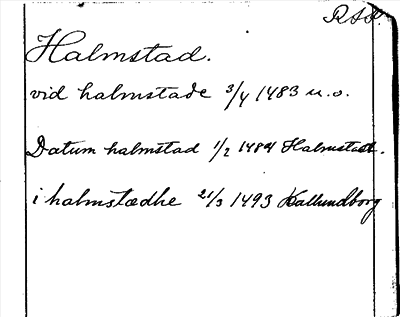 RAP.
Halmstad.
vid halmstade 3/4 1483 u.o.
Datum halmstad 1/2 1484 Halmstad.
i halmstædhe 21/3 1493 Kallundborg